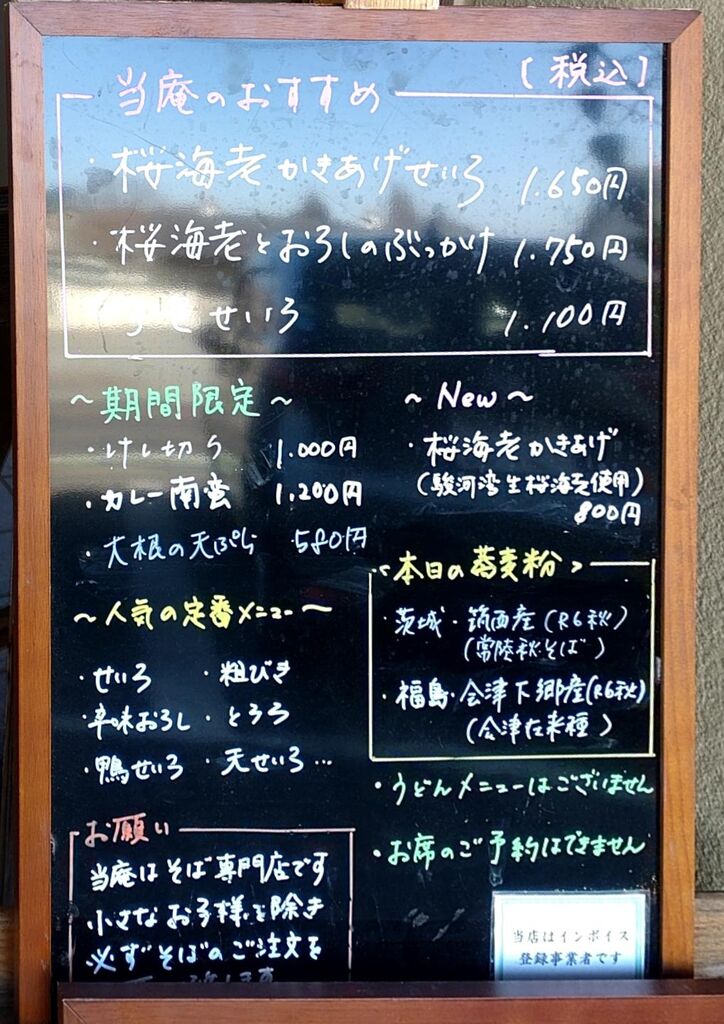 [税込]
当庵のおすすめ
・桜海老かきあげせいろ 1.650円
・桜海老とおろしのぶっかけ 1.750円
せいろ 1.100円
～期間限定～
・けし切り 1.000円
・カレー南蛮 1.200円
・大根の天ぷら 580円
～人気の定番メニュー～
・せいろ ・粗びき
・辛味おろし ・とろろ
・鴨せいろ ・天せいろ…
お願い
当庵はそば専門店です
小さなお子様を除き
必ずそばのご注文を
～New～
・桜海老かきあげ
(駿河湾生桜海老使用)
800円
<本日の蕎麦粉>
・茨城・筑西産(R6秋)
(常陸秋そば)
・福島・会津下郷産(R6秋)
(会津在来種)
・うどんメニューはございません
・お席のご予約はできません
当店はインボイス
登録事業者です